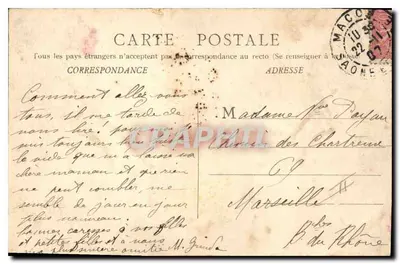 CARTE POSTALE
Tous les pays étrangers n'acceptent pas la correspondance au recto (Se renseigner à la
CORRESPONDANCE
ADRESSE
MACON
22
07
SAONE
Comment allez vous
tous, il me tarde de
vous lire! pour
suis toujours
le vide que m'a laissé ma
chère maman et que rien
ne peut combler, me
semble de jour en jour
plus
caresses à vos filles
et petites filles et à vous
ma plus sincère amitié M.
CPARAMA
Madame Vve
des Chartreux
69
Marseille
B. du Rhône